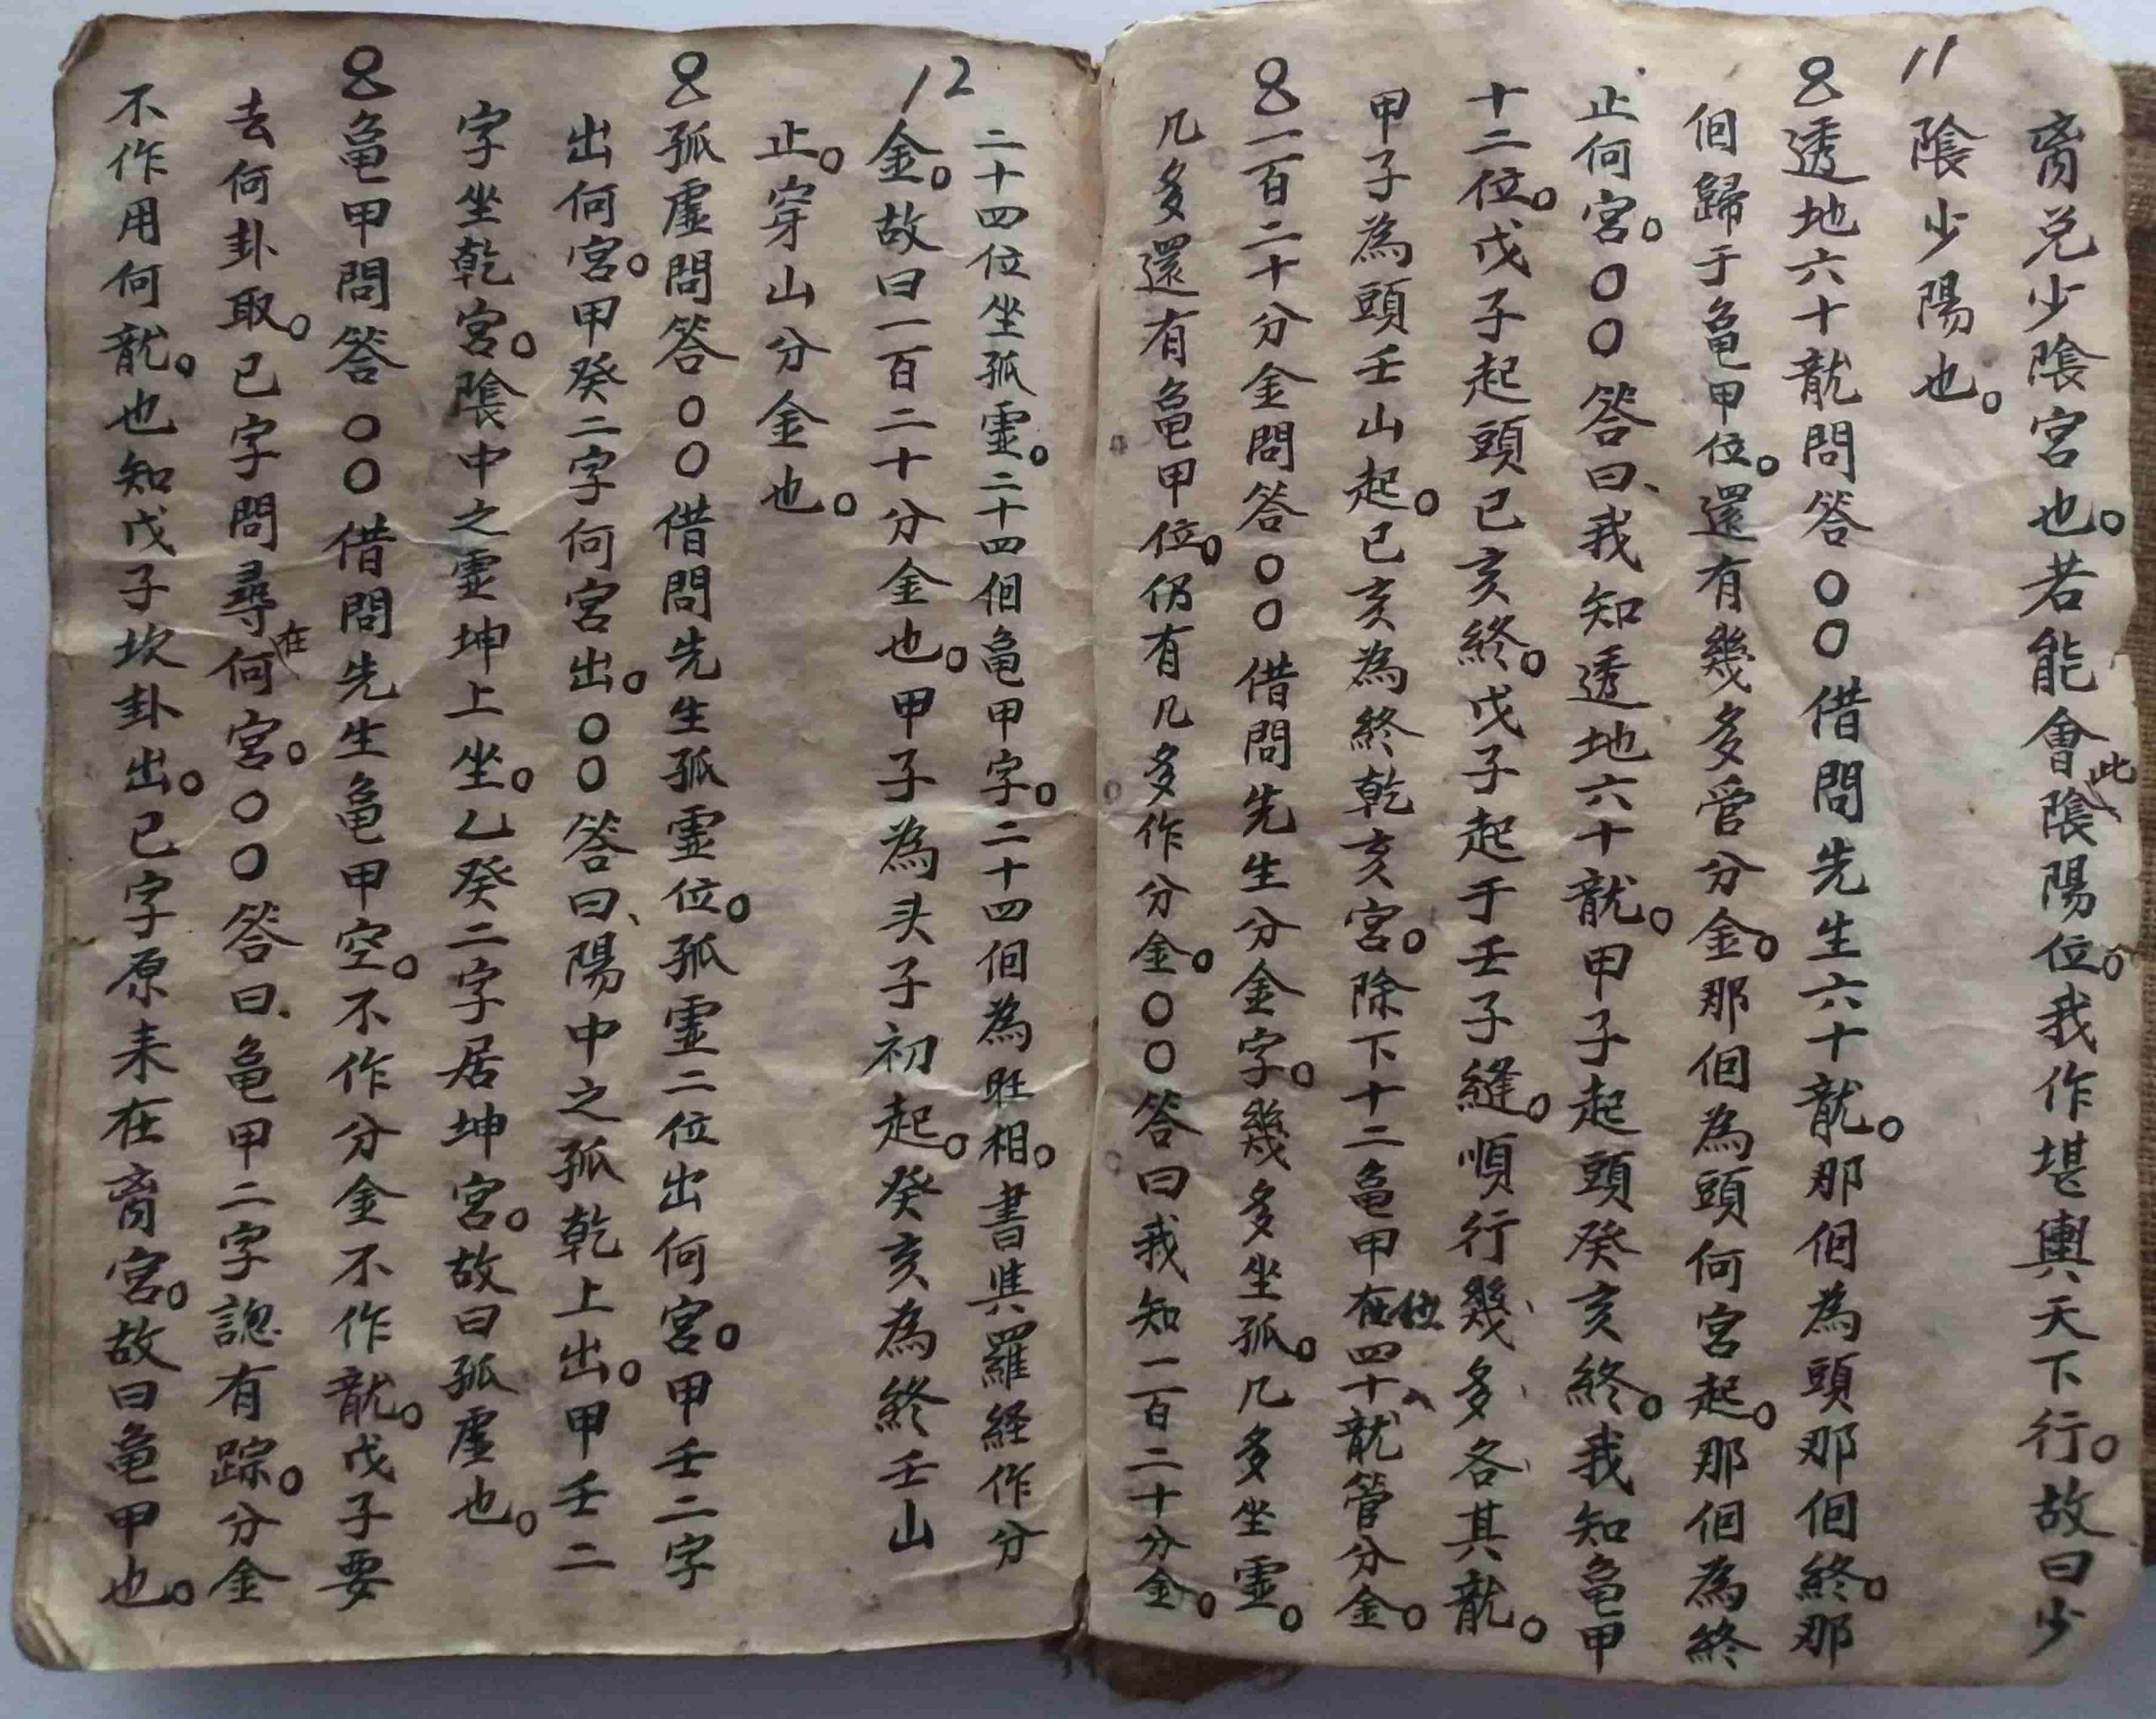 裔兑少陰宮也。若能會此陰陽位。我作堪輿天下行。故曰少
11
陰少陽也。
8透地六十龍問答○○借問先生六十龍。那個為頭那個終。那
個歸于龜甲位。還有幾多管分金。那個為頭何宮起。那個為終
止何宮。○○答曰、我知透地六十龍。甲子起頭癸亥終。我知龜甲
十二位。戊子起頭己亥終。戊子起于壬子縫。順行幾多各其龍。
甲子為頭壬山起。己亥為終乾亥宮。除下十二龜甲位四十龍管分金。
8一百二十分金問答○○借問先生分金字。幾多坐孤。几多坐虛。
几多還有龜甲位。仍有几多作分金。○○答曰我知一百二十分金。
二十四位坐孤虛。二十四個龜甲字。二十四個為旺相。書其羅経作分
12
金。故曰一百二十分金也。甲子為头子初起。癸亥為終壬山
止。穿山分金也。
8孤虛問答○○借問先生孤虛位。孤虛二位出何宮。甲壬二字
出何宮。甲癸二字何宮出。○○答曰、陽中之孤乾上出。甲壬二
字坐乾宮。陰中之虛坤上坐。乙癸二字居坤宮。故曰孤虛也。
8龜甲問答○○借問先生龜甲空。不作分金不作龍。戊子要
去何卦取。己字問尋在何宮。○○答曰、龜甲二字認有踪。分金
不作用何龍。也知戊子坎卦出。己字原来在裔宮。故曰龜甲也。